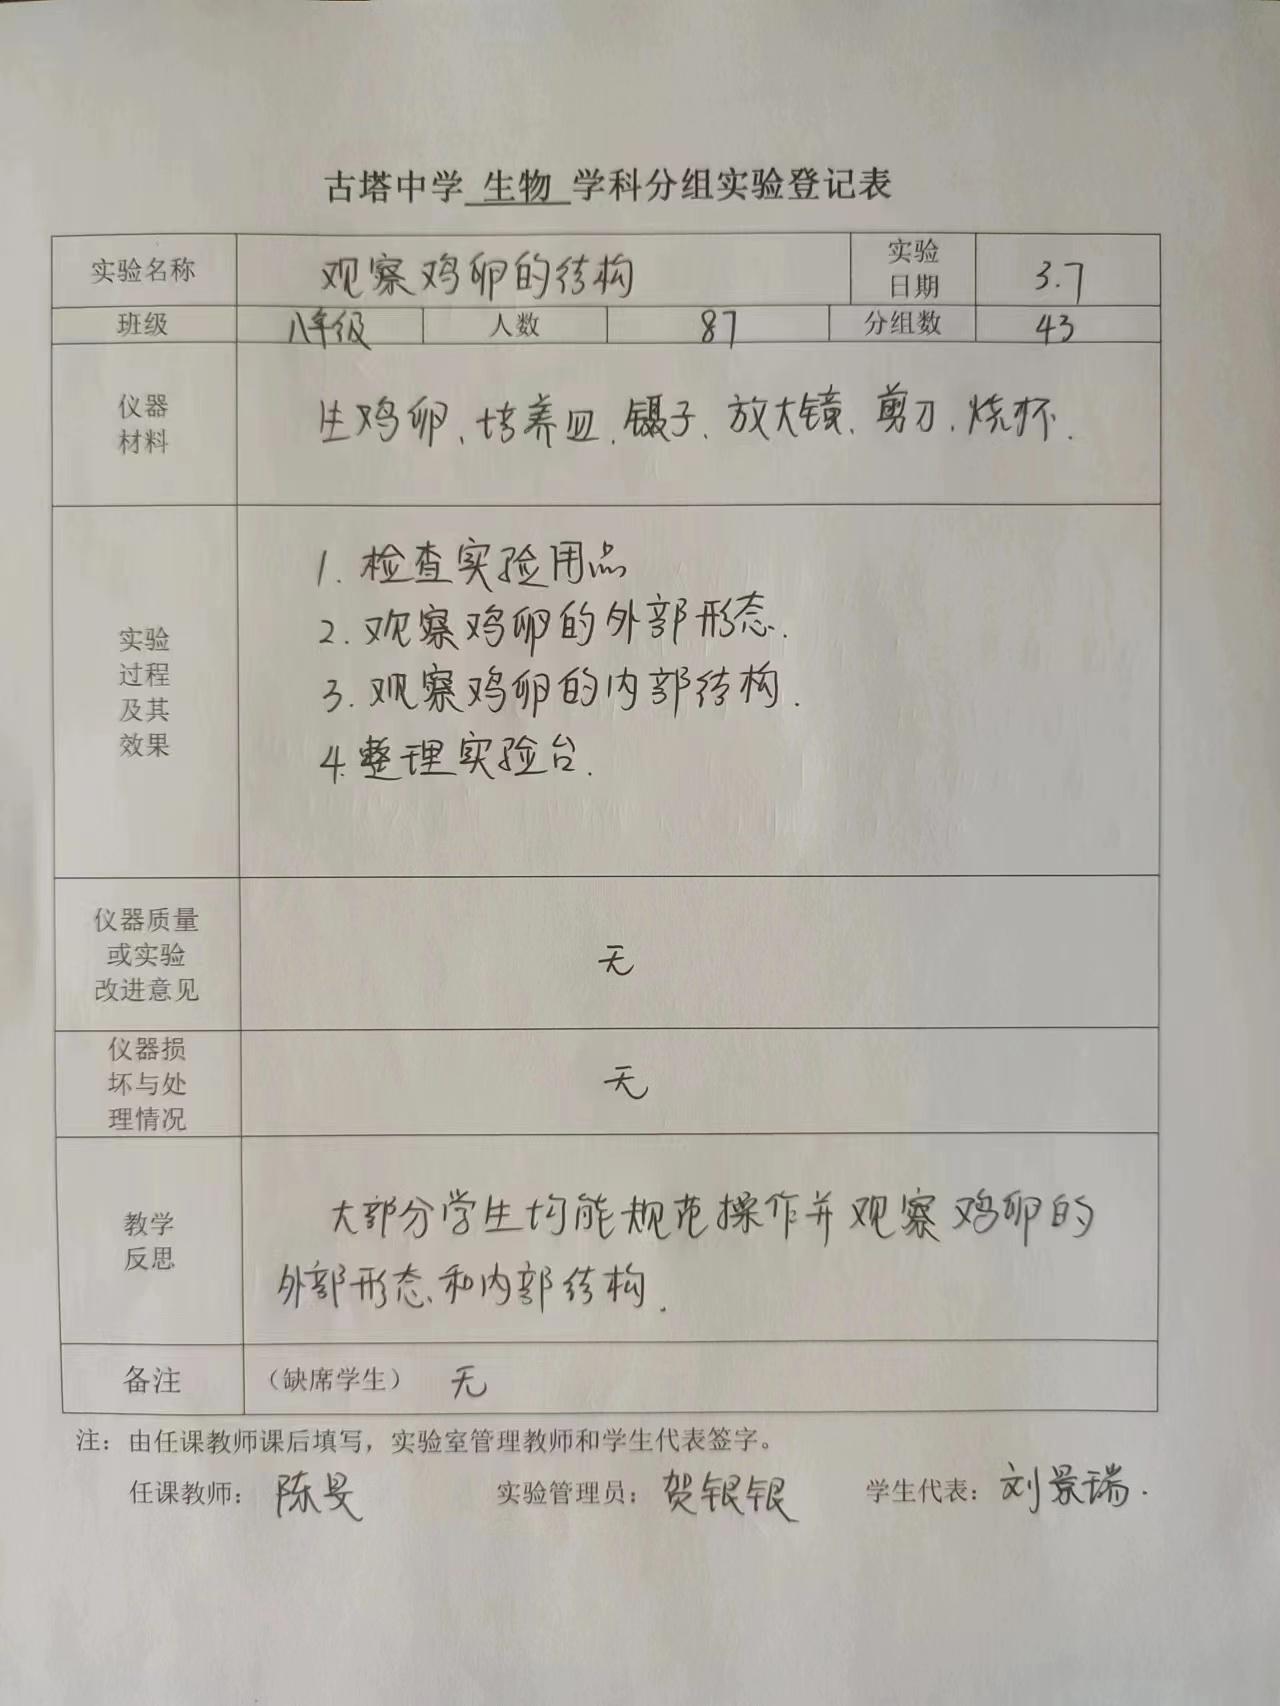 古塔中学 生物 学科分组实验登记表
实验名称 观察鸡卵的结构 实验日期 3.7
班级 八年级 人数 87 分组数 43
仪器
材料
生鸡卵、培养皿、镊子、放大镜、剪刀、烧杯.
实验
过程
及其
效果
1. 检查实验用品
2. 观察鸡卵的外部形态.
3. 观察鸡卵的内部结构.
4. 整理实验台.
仪器质量
或实验
改进意见
无
仪器损
坏与处
理情况
无
教学
反思
大部分学生均能规范操作并观察鸡卵的
外部形态和内部结构.
备注 （缺席学生） 无
注：由任课教师课后填写，实验室管理教师和学生代表签字。
任课教师：陈旻 实验管理员：贺银银 学生代表：刘景瑞.